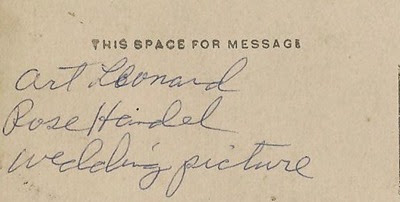 THIS SPACE FOR MESSAGE
Art Leonard
Rose Handel
wedding picture